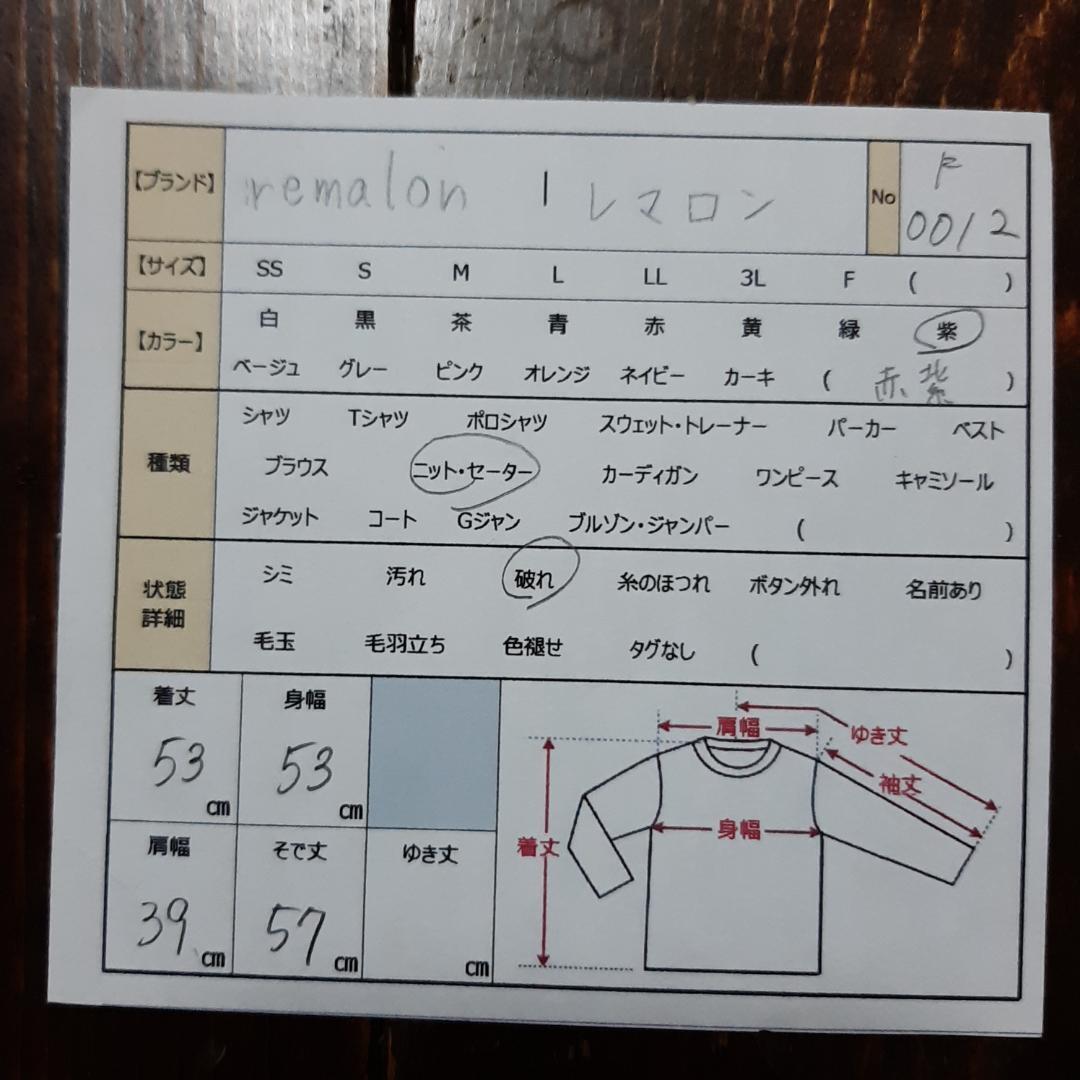 【ブランド】 remalon | レマロン No F 0012
【サイズ】 SS S M L LL 3L F ( )
【カラー】 白 黒 茶 青 赤 黄 緑 紫
ベージュ グレー ピンク オレンジ ネイビー カーキ ( 赤紫 )
種類 シャツ Tシャツ ポロシャツ スウェット・トレーナー パーカー ベスト
ブラウス ニット・セーター カーディガン ワンピース キャミソール
ジャケット コート Gジャン ブルゾン・ジャンパー ( )
状態詳細 シミ 汚れ 破れ 糸のほつれ ボタン外れ 名前あり
毛玉 毛羽立ち 色褪せ タグなし ( )
着丈 身幅
53 cm 53 cm
肩幅 そで丈 ゆき丈
39 cm 57 cm cm
肩幅 ゆき丈
袖丈
身幅
着丈